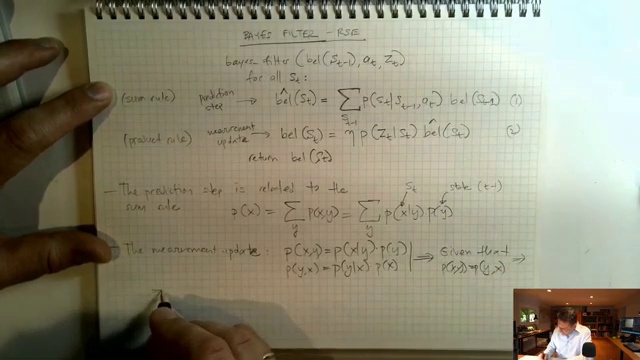 BAYES FILTER - RSE
bayes filter (bel(St-1), at, Zt)
for all St:
(sum rule) prediction step → bel̂(St) = ∑St-1 p(St|St-1, at) bel(St-1) (1)
(product rule) measurement update → bel(St) = η p(Zt|St) bel̂(St) (2)
return bel(St)
St state (t-1)
- The prediction step is related to the
sum rule p(x) = ∑y p(x,y) = ∑y p(x|y) p(y)
- The measurement update: p(x,y) = p(x|y) · p(y) ⟹ Given that ⟹
p(y,x) = p(y|x) p(x) p(x,y) = p(y,x)